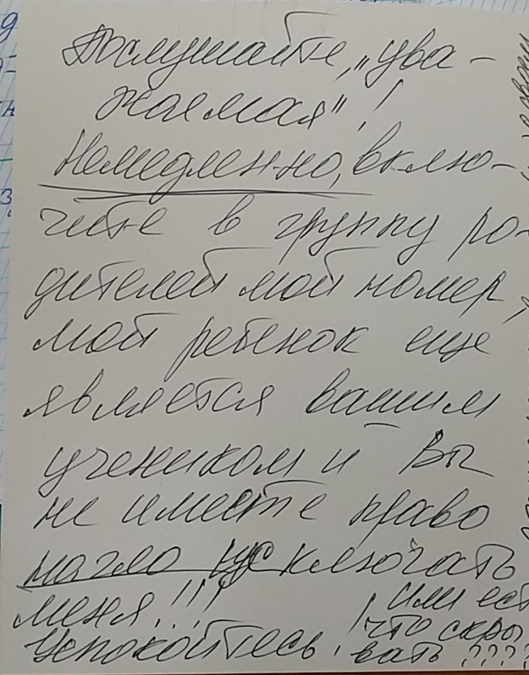 Послушайте, "ува-
жаемая"!
Немедленно, вклю-
чите в группу ро-
дителей мой номер,
мой ребенок еще
является вашим
учеником и Вы
не имеете право
нагло исключать
меня!!! Или ест
Успокойтесь! что скры
вать????